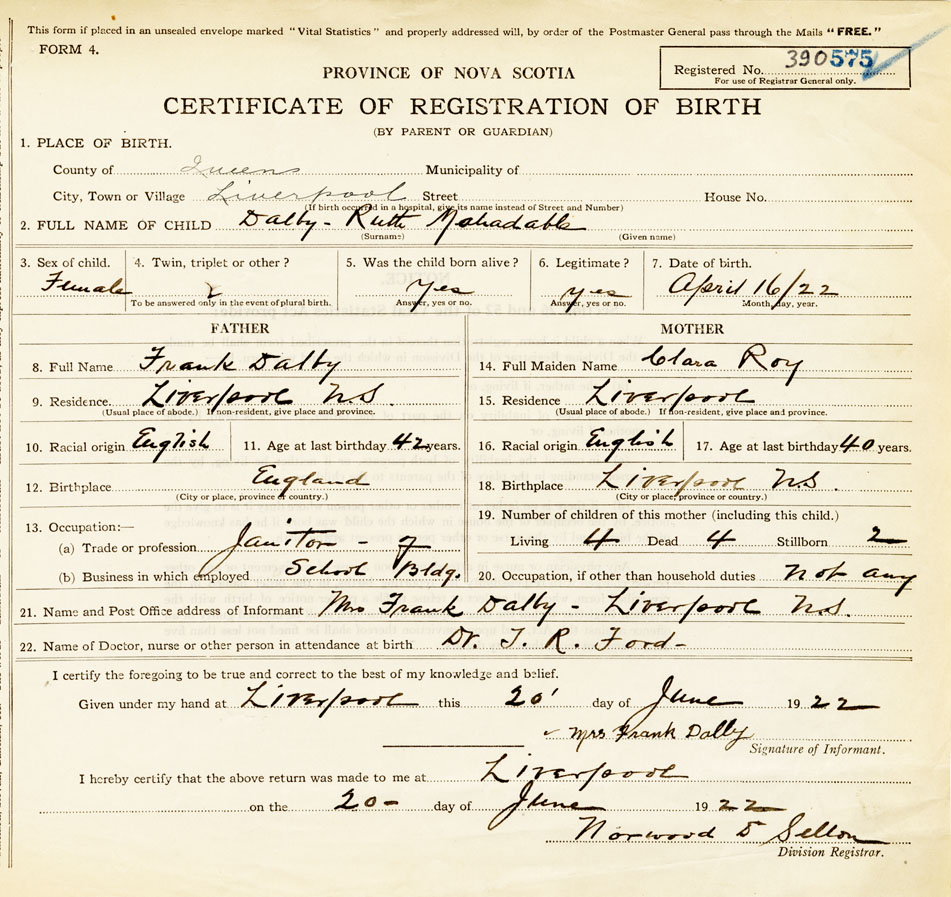 This form if placed in an unsealed envelope marked "Vital Statistics" and properly addressed will, by order of the Postmaster General pass through the Mails "FREE."
FORM 4.
Registered No. 390575
For use of Registrar General only.
PROVINCE OF NOVA SCOTIA
CERTIFICATE OF REGISTRATION OF BIRTH
(BY PARENT OR GUARDIAN)
1. PLACE OF BIRTH.
County of Queens Municipality of
City, Town or Village Liverpool Street House No.
(If birth occurred in a hospital, give its name instead of Street and Number)
2. FULL NAME OF CHILD Dalby - Ruth
(Surname) (Given name)
3. Sex of child. 4. Twin, triplet or other? 5. Was the child born alive? 6. Legitimate? 7. Date of birth.
Female yes yes April 16/22
To be answered only in the event of plural birth. Answer, yes or no. Answer, yes or no. Month, day, year.
FATHER MOTHER
8. Full Name Frank Dalby 14. Full Maiden Name Clara Roy
9. Residence. Liverpool N.S. 15. Residence Liverpool
(Usual place of abode.) If non-resident, give place and province. (Usual place of abode.) If non-resident, give place and province.
10. Racial origin English 11. Age at last birthday 42 years. 16. Racial origin English 17. Age at last birthday 40 years.
12. Birthplace England 18. Birthplace Liverpool N.S.
(City or place, province or country.) (City or place, province or country.)
13. Occupation:— 19. Number of children of this mother (including this child.)
(a) Trade or profession Janitor - of Living 4 Dead 4 Stillborn 2
(b) Business in which employed School Bldg. 20. Occupation, if other than household duties Not any
21. Name and Post Office address of Informant Mrs Frank Dalby - Liverpool N.S.
22. Name of Doctor, nurse or other person in attendance at birth Dr. J. R. Ford -
I certify the foregoing to be true and correct to the best of my knowledge and belief.
Given under my hand at Liverpool this 20' day of June 1922
Mrs Frank Dalby
Signature of Informant.
I hereby certify that the above return was made to me at Liverpool
on the 20- day of June 1922
Norwood
Division Registrar.